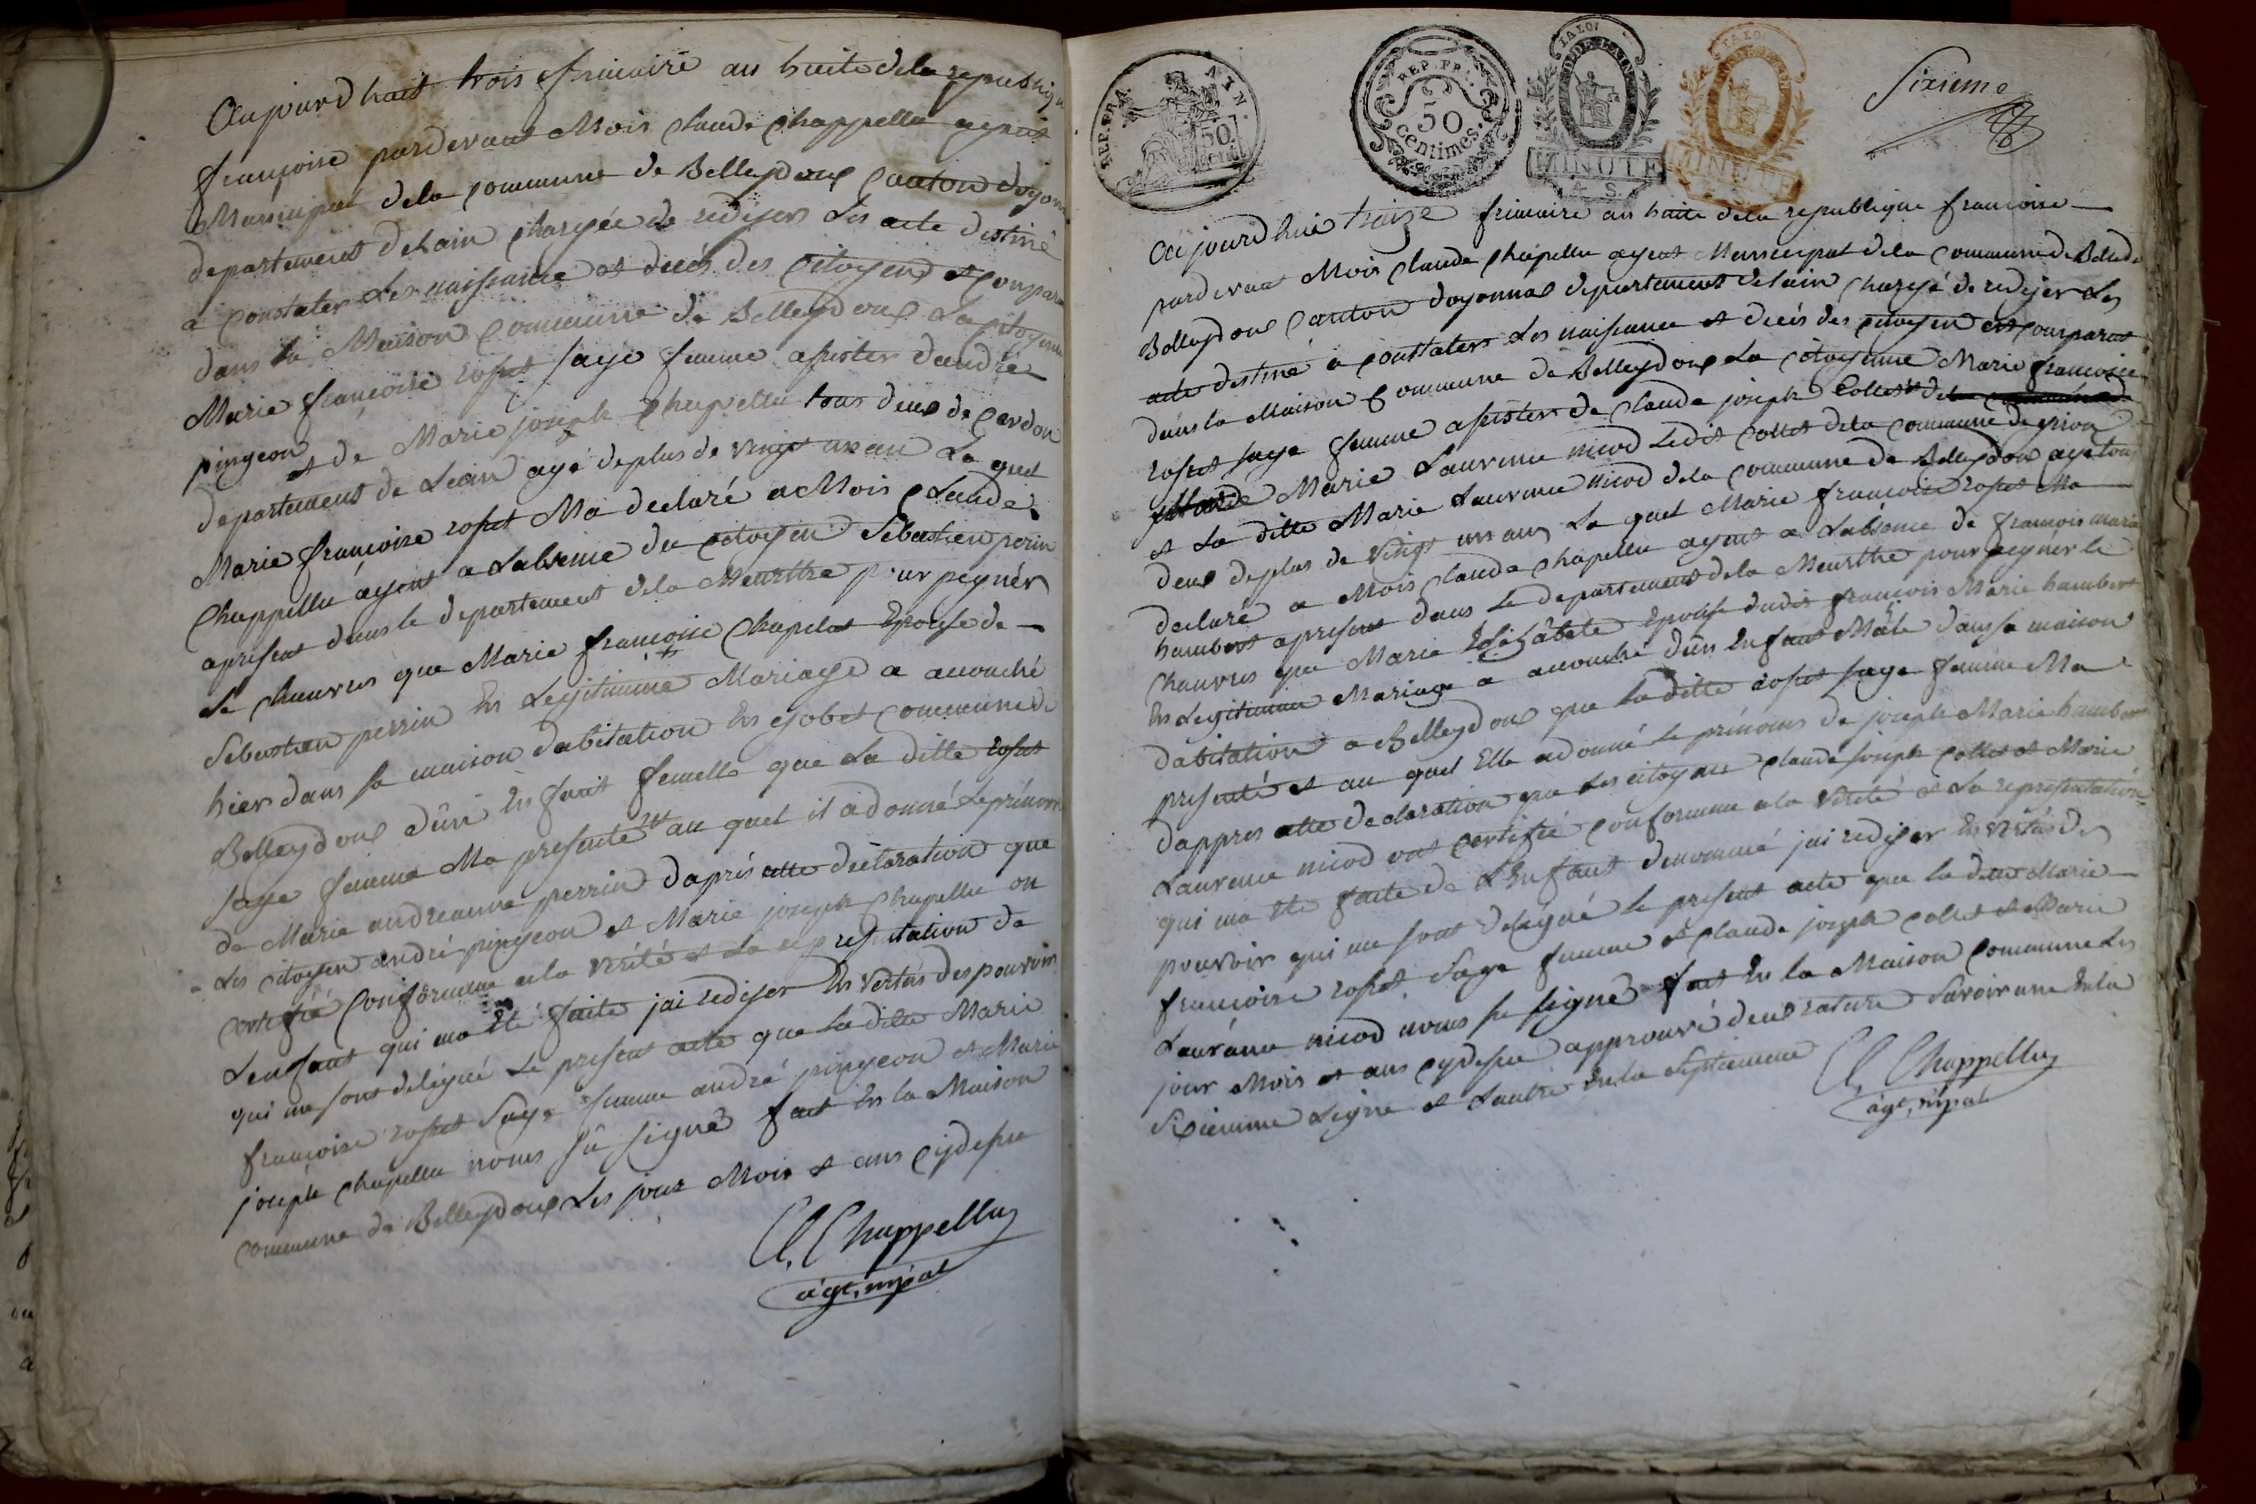 Aujourd huit trois frimaire an huite dela republiq
françoise pardevant Mois Claude Chappellu agent
Municipal dela commune de Belleydoux Canton doyon
departement delain chargée de rediger Les acte destiné
a constater Les naissance et decés des citoyens et conpara
dans la Maison commune de Belleydoux La citoyenne
Marie françoise rosset sage femme assister dandré
pingeon et de Marie joseph Chapellu tous deux de
departement de Leain agé deplus de vingt un an La quel
Marie françoise rosset Ma declaré a Mois Claude
Chappellu agent a Labsence du citoyen Sebastien perin
apresent dans le departement dela Meurttre pour pegnér
Le chanvres que Marie françoise Chapelat Epouse de
Sebastien perrin En Legitimme Mariage a accouché
hier dans sa maison dabitation En gobet commune de
Belleydoux dûn Enfant femelle que La ditte rosset
sage femme Ma presenté et au quel il a donné Le prénom
de Marie andreanne perrin daprés cette déclaration que
Les citoyen andré pingeon et Marie joseph Chapellu on
certifié conformme a la vérité et La representation de
Lenfant qui ma Eté faite jai rediger En vertus des pouvoir
qui me sont deligué Le present acte que La ditte Marie
françoise rosset sage femme andré pingeon et Marie
joseph chapellu nous sû signé fait En la Maison
commune de Belleydoux Les jour Mois et ans cydessu
Cl. Chappellu
agt, mpal
REP. FRA.
AIN
50
cent.
REP. FR.
50
centimes.
LA LOI
MINUTE
4. S.
LA LOI
MINUTE
Sixieme
Aujourd huie treize frimaire an huite dela republique francoise
pardevant Mois Claude Chapellu agent Municipal dela commune de Bellede
Belleydoux Canton doyonnax departement delain chargé de redijer Les
acte destiné a constaters Les naissance et decés des citoyen et comparut
dans la Maison Commune de Belleydoux La citoyenne Marie francoise
rosset sage femme assister de Claude joseph Collet
Marie Laurence nicod Ledit Collet dela commune de
et La ditte Marie Laurence nicod dela commune de Belleydoux agé tous
deux deplus de vingt un ans La quel Marie francoise rosset Ma
declaré a Mois Claude Chapellu agent a Labsence de francois marie
humbert apresent dans Le departement dela Meurthe pour pegnér le
chanvres que Marie Elizâbete Epouse dudit francois Marie humbert
En Legitimme Mariage a accouché dûn Enfant Mâle dans sa maison
dabitation a Belleydoux que La ditte rosset sage femme Ma
presenté et au quel Elle a donné Le prénoms de joseph Marie humbert
dappres cette declaration que Les citoyens Claude joseph Collet et Marie
Laurence nicod ont certifié conformme a la vérité et La representation
qui ma Eté faite de LEnfant denommé jai rediger En vertus des
pouvoir qui me sont deligué Le present acte que la ditte Marie
francoise rosset sage femme et Claude joseph Collet et Marie
Laurence nicod nous su signé fait En la Maison Commune Les
jour Mois et ans cydessu approuvé deux rature savoir une En la
Sixiemme Ligne et Lautre En la Septiemme
Cl. Chappellu
agt, mpal